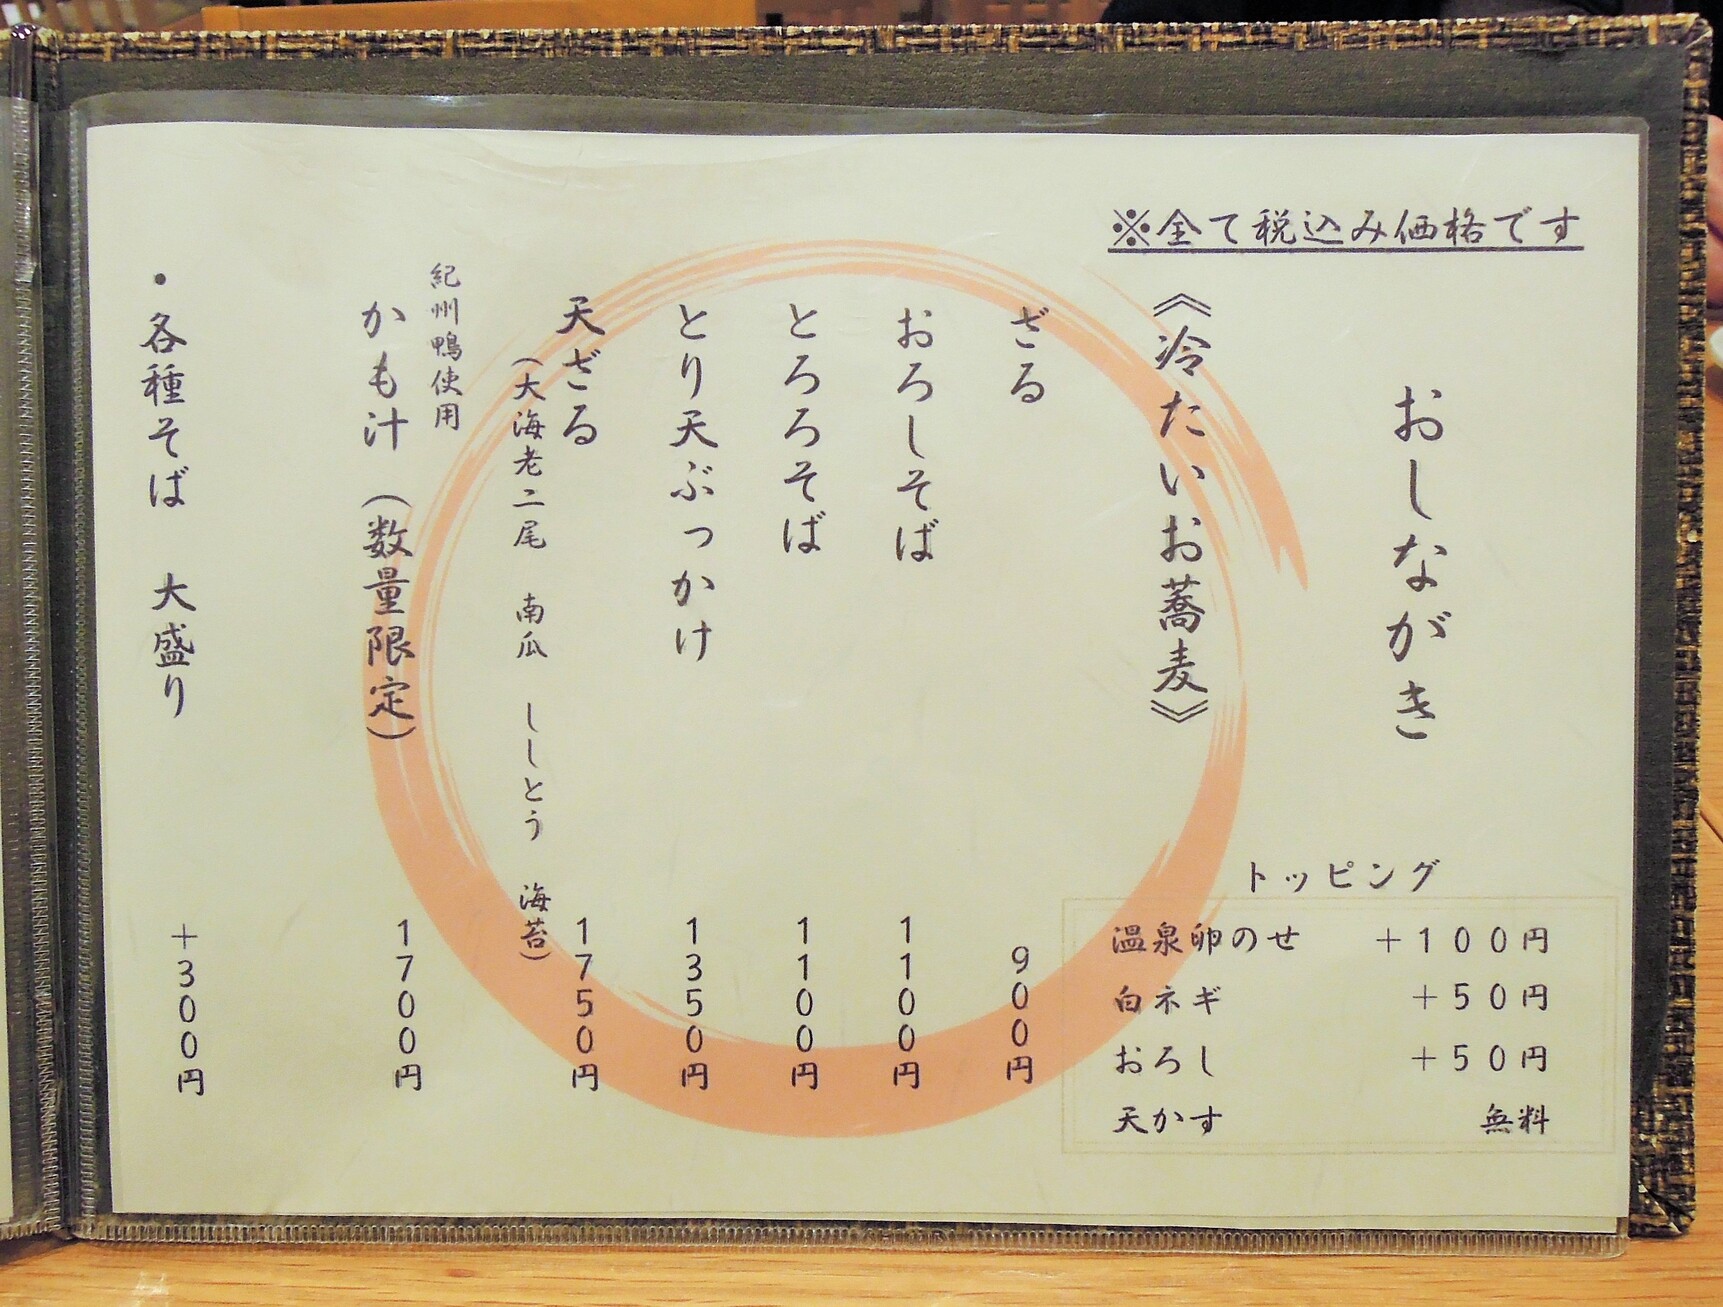 ※全て税込み価格です
おしながき
《冷たいお蕎麦》
ざる 900円
おろしそば 1100円
とろろそば 1100円
とり天ぶっかけ 1350円
天ざる 1750円
(大海老二尾 南瓜 ししとう 海苔)
紀州鴨使用
かも汁 (数量限定) 1700円
・各種そば 大盛り +300円
トッピング
温泉卵のせ +100円
白ネギ +50円
おろし +50円
天かす 無料